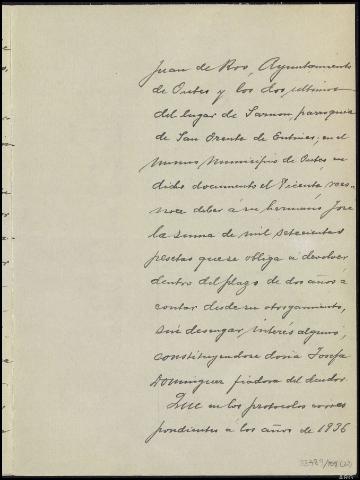 Juan de Roo, Ayuntamiento
de Outes y los dos ultimos
del lugar de Sarmon, parroquia
de San Orente de Entines, en el
mismo Municipio de Outes, en
dicho documento el Vicente reco-
noce deber á su hermano José
la suma de mil setecientas
pesetas que se obliga á devolver
dentro del plazo de dos años á
contar desde su otorgamiento,
sin devengar interés alguno,
constituyendose doña Josefa
Dominguez fiadora del deudor.
Que en los protocolos corres
pondientes a los años de 1936